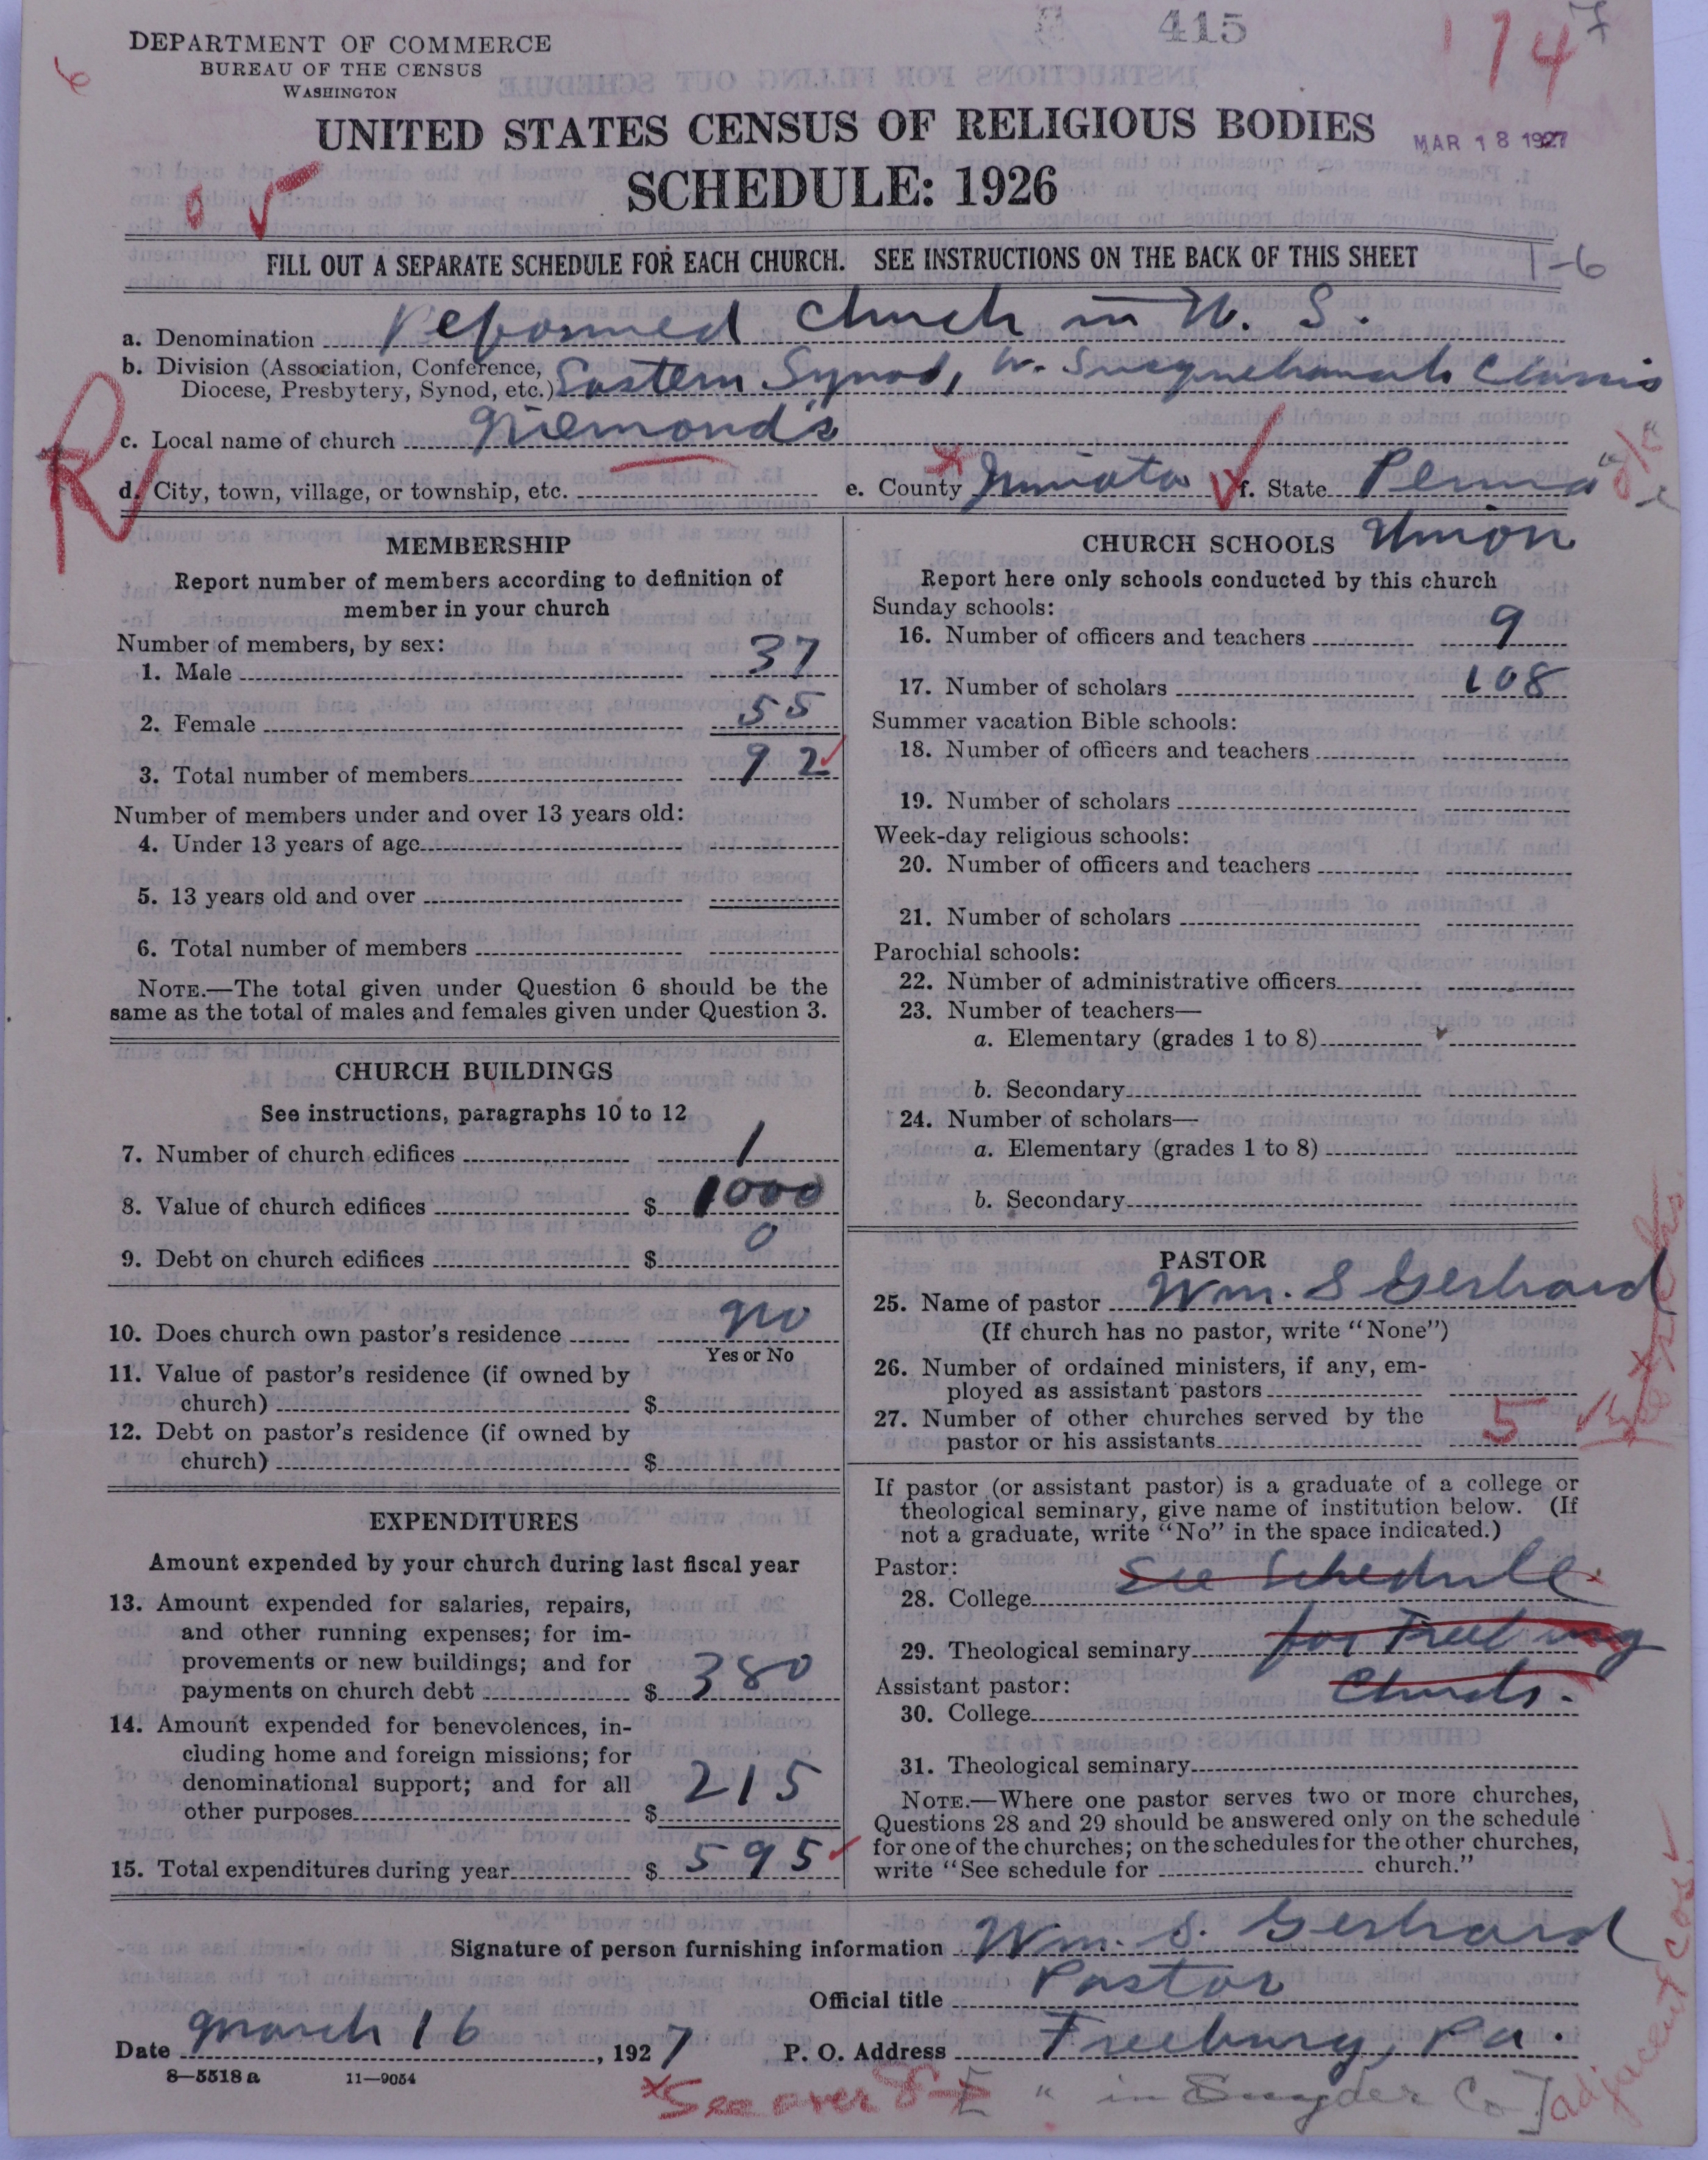 415
174
7
DEPARTMENT OF COMMERCE
BUREAU OF THE CENSUS
WASHINGTON
6
UNITED STATES CENSUS OF RELIGIOUS BODIES
MAR 18 1927
SCHEDULE: 1926
FILL OUT A SEPARATE SCHEDULE FOR EACH CHURCH. SEE INSTRUCTIONS ON THE BACK OF THIS SHEET
T-6
a. Denomination Reformed Church in U. S.
b. Division (Association, Conference,
Diocese, Presbytery, Synod, etc.) Eastern Synod, W. Susquehanah Classis
c. Local name of church Niemond's
R
d. City, town, village, or township, etc. e. County Juniata f. State Penna
MEMBERSHIP
Report number of members according to definition of
member in your church
Number of members, by sex:
1. Male 37
2. Female 55
3. Total number of members 92
Number of members under and over 13 years old:
4. Under 13 years of age
5. 13 years old and over
6. Total number of members
NOTE.—The total given under Question 6 should be the
same as the total of males and females given under Question 3.
CHURCH BUILDINGS
See instructions, paragraphs 10 to 12
7. Number of church edifices 1
8. Value of church edifices $ 1000
9. Debt on church edifices $ 0
10. Does church own pastor's residence no
Yes or No
11. Value of pastor's residence (if owned by
church) $
12. Debt on pastor's residence (if owned by
church) $
EXPENDITURES
Amount expended by your church during last fiscal year
13. Amount expended for salaries, repairs,
and other running expenses; for im-
provements or new buildings; and for
payments on church debt $ 380
14. Amount expended for benevolences, in-
cluding home and foreign missions; for
denominational support; and for all
other purposes $ 215
15. Total expenditures during year $ 595
CHURCH SCHOOLS Union
Report here only schools conducted by this church
Sunday schools:
16. Number of officers and teachers 9
17. Number of scholars 108
Summer vacation Bible schools:
18. Number of officers and teachers
19. Number of scholars
Week-day religious schools:
20. Number of officers and teachers
21. Number of scholars
Parochial schools:
22. Number of administrative officers
23. Number of teachers—
a. Elementary (grades 1 to 8)
b. Secondary
24. Number of scholars—
a. Elementary (grades 1 to 8)
b. Secondary
PASTOR
25. Name of pastor Wm. S Gerhard
(If church has no pastor, write "None")
26. Number of ordained ministers, if any, em-
ployed as assistant pastors
27. Number of other churches served by the
pastor or his assistants 5
If pastor (or assistant pastor) is a graduate of a college or
theological seminary, give name of institution below. (If
not a graduate, write "No" in the space indicated.)
Pastor:
28. College See Schedule
29. Theological seminary for Freeburg
Assistant pastor: Church.
30. College
31. Theological seminary
NOTE.—Where one pastor serves two or more churches,
Questions 28 and 29 should be answered only on the schedule
for one of the churches; on the schedules for the other churches,
write "See schedule for church."
Signature of person furnishing information Wm. S. Gerhard
Official title Pastor
Date March 16, 1927 P. O. Address Freeburg, Pa.
8—5518 a 11—9054
*See over
" in Snyder Co]
adjacent cos.